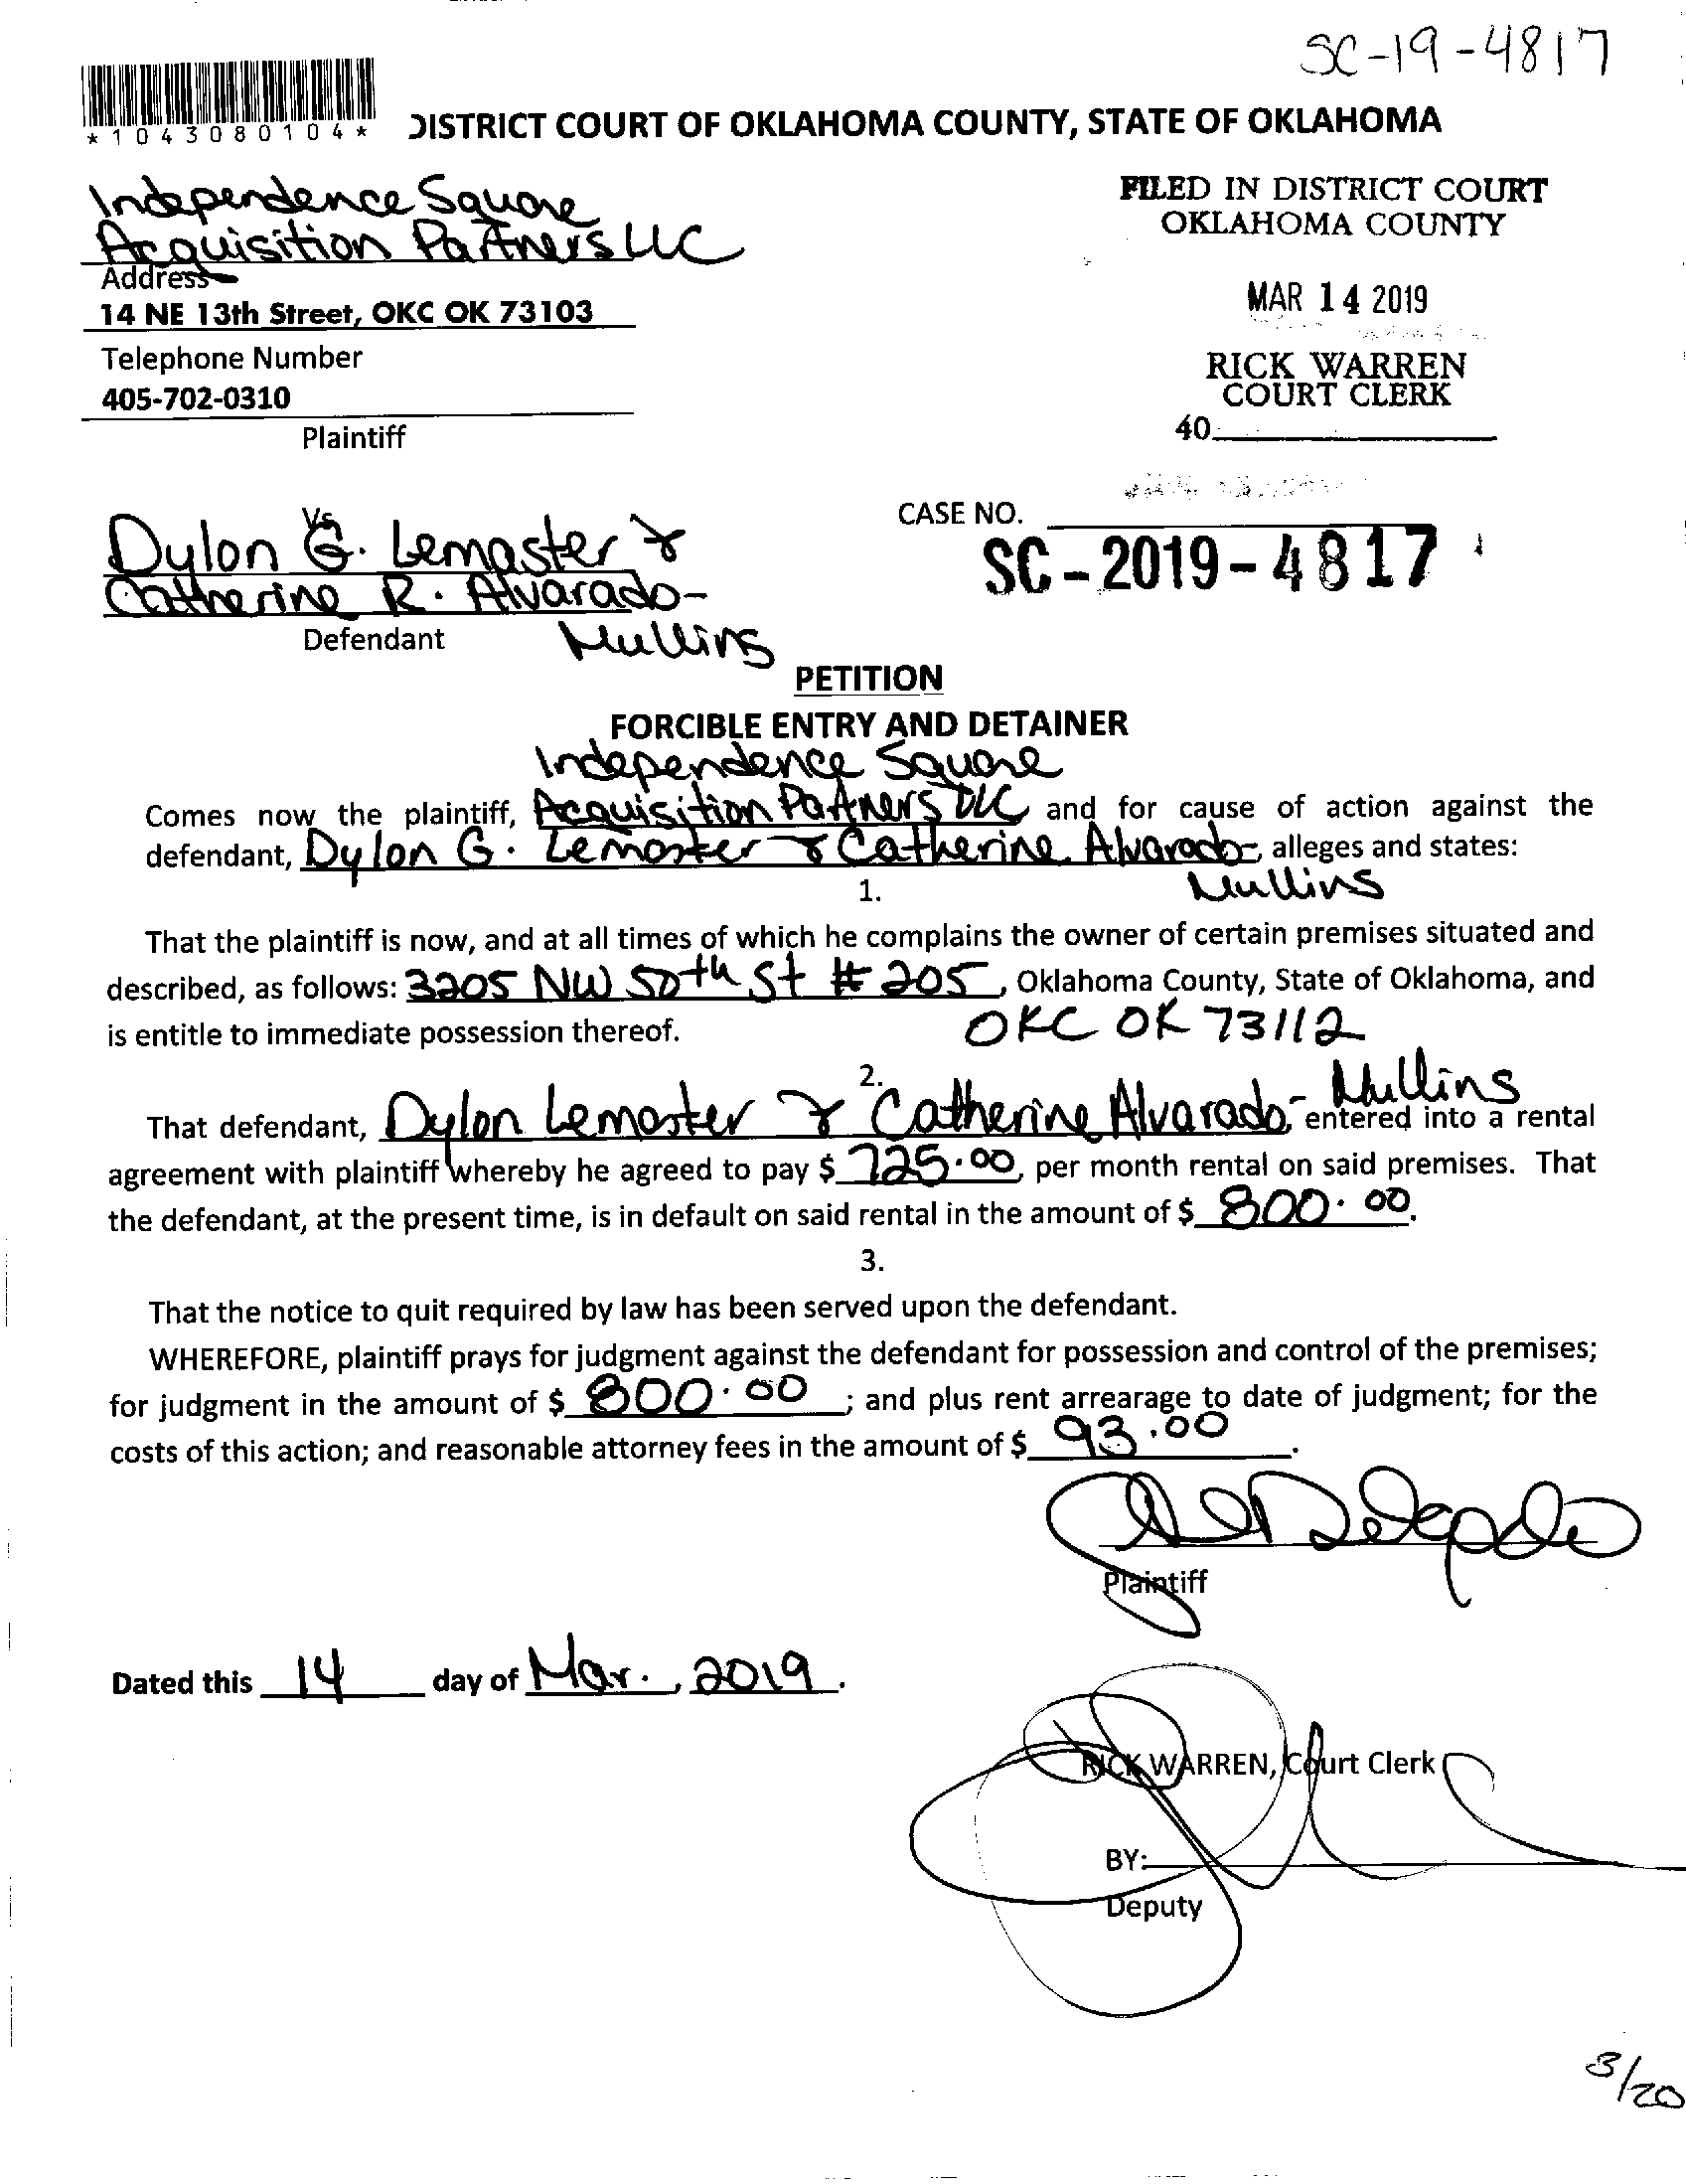 SC-19-4817
*1043080104*
DISTRICT COURT OF OKLAHOMA COUNTY, STATE OF OKLAHOMA
Independence Square
Acquisition Partners LLC
Address
14 NE 13th Street, OKC OK 73103
Telephone Number
405-702-0310
Plaintiff
FILED IN DISTRICT COURT
OKLAHOMA COUNTY
MAR 14 2019
RICK WARREN
COURT CLERK
40
Vs
Dylon G. Lemaster &
Catherine R. Alvarado-
Mullins
Defendant
CASE NO.
SC-2019-4817
PETITION
FORCIBLE ENTRY AND DETAINER
Independence Square
Comes now the plaintiff, Acquisition Partners LLC and for cause of action against the
defendant, Dylon G. Lemaster & Catherine Alvarado-, alleges and states:
Mullins
1.
That the plaintiff is now, and at all times of which he complains the owner of certain premises situated and
described, as follows: 3205 NW 50th St # 205, Oklahoma County, State of Oklahoma, and
is entitle to immediate possession thereof. OKC OK 73112
2.
That defendant, Dylon Lemaster & Catherine Alvarado-Mullins entered into a rental
agreement with plaintiff whereby he agreed to pay $ 725.00, per month rental on said premises. That
the defendant, at the present time, is in default on said rental in the amount of $ 800.00.
3.
That the notice to quit required by law has been served upon the defendant.
WHEREFORE, plaintiff prays for judgment against the defendant for possession and control of the premises;
for judgment in the amount of $ 800.00; and plus rent arrearage to date of judgment; for the
costs of this action; and reasonable attorney fees in the amount of $ 93.00.
Plaintiff
Dated this 14 day of Mar., 2019.
RICK WARREN, Court Clerk
BY:
Deputy
3/20